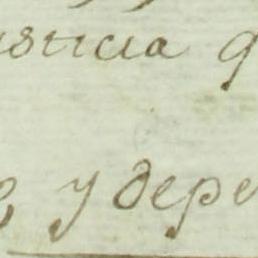 usticia q
y depe